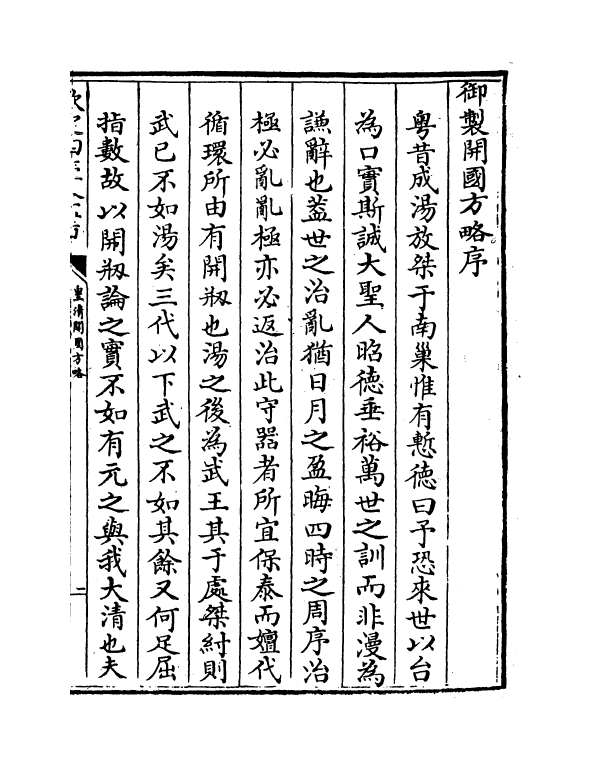 御製開國方略序
粤昔成湯放桀于南巢惟有慙徳曰予恐來世以台
為口實斯誠大聖人昭徳垂裕萬世之訓而非漫為
謙辭也葢世之治亂猶日月之盈晦四時之周序治
極必亂亂極亦必返治此守器者所宜保泰而嬗代
循環所由有開刱也湯之後為武王其于處桀紂則
武已不如湯矣三代以下武之不如其餘又何足屈
指數故以開刱論之實不如有元之與我大清也夫
皇清開國方略